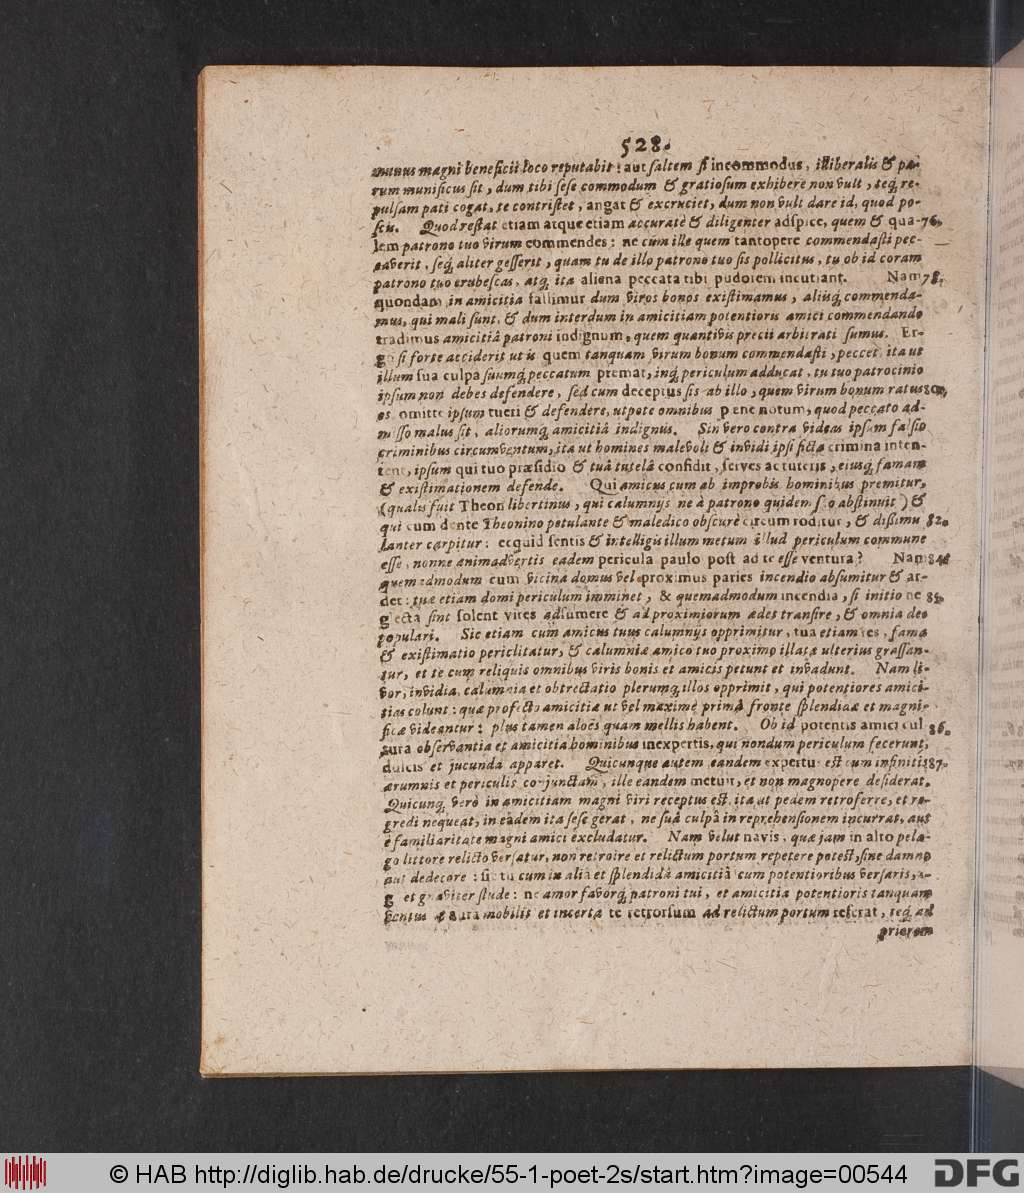 528.
munus magni beneficii loco reputabit: aut saltem si incommodus, illiberalis & pa-
rum munificus sit, dum tibi sese commodum & gratiosum exhibere non vult, teq́; re-
pulsam pati cogat, te contristet, angat & excruciet, dum non vult dare id, quod po-
scis. Quod restat etiam atque etiam accuratè & diligenter adspice, quem & qua- 76.
lem patrono tuo virum commendes: ne cùm ille quem tantopere commendasti pec-
caverit, seq́; aliter gesserit, quam tu de illo patrono tuo sis pollicitus, tu ob id coram
patrono tuo erubescas, atq́; ita aliena peccata tibi pudorem incutiant. Nam 78.
quondam in amicitia fallimur dum viros bonos existimamus, aliisq́; commenda-
mus, qui mali sunt, & dum interdum in amicitiam potentioris amici commendando
tradimus amicitiâ patroni indignum, quem quantivis precii arbitrati sumus. Er-
go si forte acciderit ut is quem tanquam virum bonum commendasti, peccet, ita ut
illum sua culpa suumq́; peccatum premat, inq́; periculum adducat, tu tuo patrocinio
ipsum non debes defendere, sed cum deceptus sis ab illo, quem virum bonum ratus 80.
es, omitte ipsum tueri & defendere, utpote omnibus pene notum, quod peccato ad-
misso malus sit, aliorumq́; amicitiâ indignus. Sin vero contra videas ipsum falsis
criminibus circumventum, ita ut homines malevoli & invidi ipsi ficta crimina inten-
tent, ipsum qui tuo præsidio & tuâ tutelâ confidit, serves ac tuteris, ejusq́; famam
& existimationem defende. Qui amicus cum ab improbis hominibus premitur,
(qualis fuit Theon libertinus, qui calumnijs ne à patrono quidem suo abstinuit) &
qui cum dente Theonino petulante & maledico obscurè circum roditur, & dissimu 82.
lanter carpitur: ecquid sentis & intelligis illum metum illud periculum commune
esse, nonne animadvertis eadem pericula paulo post ad te esse ventura? Nam 84.
quemadmodum cum vicina domus vel proximus paries incendio absumitur & ar-
det: tuæ etiam domi periculum imminet, & quemadmodum incendia, si initio ne 85.
glecta sint solent vires adsumere & ad proximiorum ædes transire, & omnia de-
populari. Sic etiam cum amicus tuus calumnijs opprimitur, tua etiam res, fama
& existimatio periclitatur, & calumniæ amico tuo proximo illatæ ulterius grassan-
tur, et te cum reliquis omnibus viris bonis et amicis petunt et invadunt. Nam li-
vor, invidia, calumnia et obtrectatio plerumq́; illos opprimit, qui potentiores amici-
tias colunt: quæ profecto amicitiæ ut vel maximè primâ fronte splendidæ et magni-
ficæ videantur: plus tamen aloës quam mellis habent. Ob id potentis amici cul 86.
tura observantia et amicitia hominibus inexpertis, qui nondum periculum fecerunt,
dulcis et jucunda apparet. Quicunque autem eandem expertus est cum infinitis 87.
ærumnis et periculis conjunctam, ille eandem metuit, et non magnopere desiderat.
Quicunq́; verò in amicitiam magni viri receptus est, ita ut pedem retroferre, et re-
gredi nequeat, in eadem ita sese gerat, ne suâ culpâ in reprehensionem incurrat, aut
è familiaritate magni amici excludatur. Nam velut navis, quæ jam in alto pela-
go littore relicto versatur, non retroire et relictum portum repetere potest, sine damno
aut dedecore: sic tu cum in aliâ et splendidâ amicitiâ cum potentioribus versaris, a-
g et graviter stude: ne amor favorq́; patroni tui, et amicitia potentioris tanquam
ventus & aura mobilis et incerta te retrorsum ad relictum portum referat, teq́; ad
priorem
© HAB http://diglib.hab.de/drucke/55-1-poet-2s/start.htm?image=00544
DFG